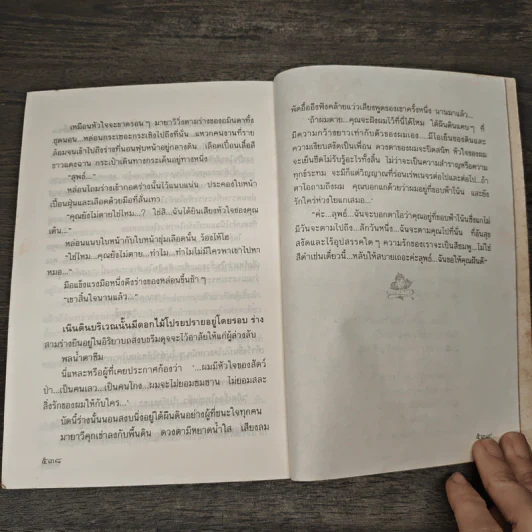 เหมือนหัวใจจะขาดรอน ๆ มายาวีวิ่งตามร่างของอมันตาที่ง
ล้อมจนเข้าไปถึงร่างที่นอนฟุบหน้าอยู่กลางดิน เลือดเปื้อนเสื้อสี
ขาวแดงฉาน กระเป๋าเดินทางกระเด็นอยู่ทางหนึ่ง
“สุพธ์...”
หล่อนโถมร่างเข้ากอดร่างนั้นไว้แนบแน่น ประคองใบหน้า
เปื้อนฝุ่นและเลือดด้วยมือที่สั่นเทา
“คุณยังไม่ตายใช่ไหม...? ใช่สิ...ฉันได้ยินเสียงหัวใจของคุณ
เต้น...”
หล่อนแนบใบหน้ากับใบหน้าชุ่มเลือดนั้น ร้องไห้โฮ
“ใช่ไหม...คุณยังไม่ตาย...ทำไม...ทำไมไม่มีใครพาเขาไปหา
หมอ...”
มือแข็งแรงมือหนึ่งดึงร่างของหล่อนขึ้นช้า ๆ
“เขาสิ้นใจนานแล้ว...”
เนินดินบริเวณนั้นมีดอกไม้โปรยปรายอยู่โดยรอบ ร่าง
สามร่างยืนอยู่ในอิริยาบถสงบขรึมดุจจะไว้อาลัยให้แก่ผู้ล่วงลับ
พลน้ำตาซึม
นี่แหละหรือผู้ที่เคยประกาศก้องว่า ‘...ผมมีหัวใจของสัตว์
ป่า...เป็นคนเลว...เป็นคนโกง...ผมจะไม่ยอมซมซาน ไม่ยอมสละ
สิ่งรักของผมให้กับใคร...’
บัดนี้ร่างนั้นนอนสงบนิ่งอยู่ใต้ผืนดินอย่างผู้ที่ชนะใจทุกคน
มายาวีคุกเข่าลงกับพื้นดิน ดวงตามีหยาดน้ำใส เสียงลม
๕๓๘
พัดอื้ออึงฟังคล้ายแว่วเสียงพูดของเขาครั้งหนึ่ง นานมาแล้ว...
‘ถ้าผมตาย...คุณจะฝังผมไว้ที่นี่ได้ไหม ใต้ผืนดินแคบๆ ที่
มีความกว้างยาวเท่ากับตัวของผมเอง...มีไอเย็นของดินและ
ความเงียบสงัดเป็นเพื่อน ดวงตาของผมจะปิดสนิท หัวใจของผม
จะเย็นชืดไม่รับรู้อะไรทั้งสิ้น ไม่ว่าจะเป็นความสำราญหรือความ
ทุกข์ระทม จะมีก็แต่วิญญาณที่ร่อนเร่พเนจรต่อไปและต่อไป...ถ้า
ตาไอถามถึงผม คุณบอกแกด้วยว่าผมอยู่ที่ขอบฟ้าโน้น และยัง
รักใคร่ห่วงใยแกเสมอ...’
“ค่ะ...สุพธ์...ฉันจะบอกตาไอว่าคุณอยู่ที่ขอบฟ้าโน้นซึ่งแกไม่
มีวันจะตามไปถึง...สักวันหนึ่ง...ฉันจะตามคุณไปที่นั่น ที่อันสุข
สงัดและไร้อุปสรรคใด ๆ ความรักของเราจะเป็นสีชมพู...ไม่ใช่
สีดำเช่นเดี๋ยวนี้...หลับให้สบายเถอะค่ะสุพธ์...ฉันขอให้คุณฝันดี”